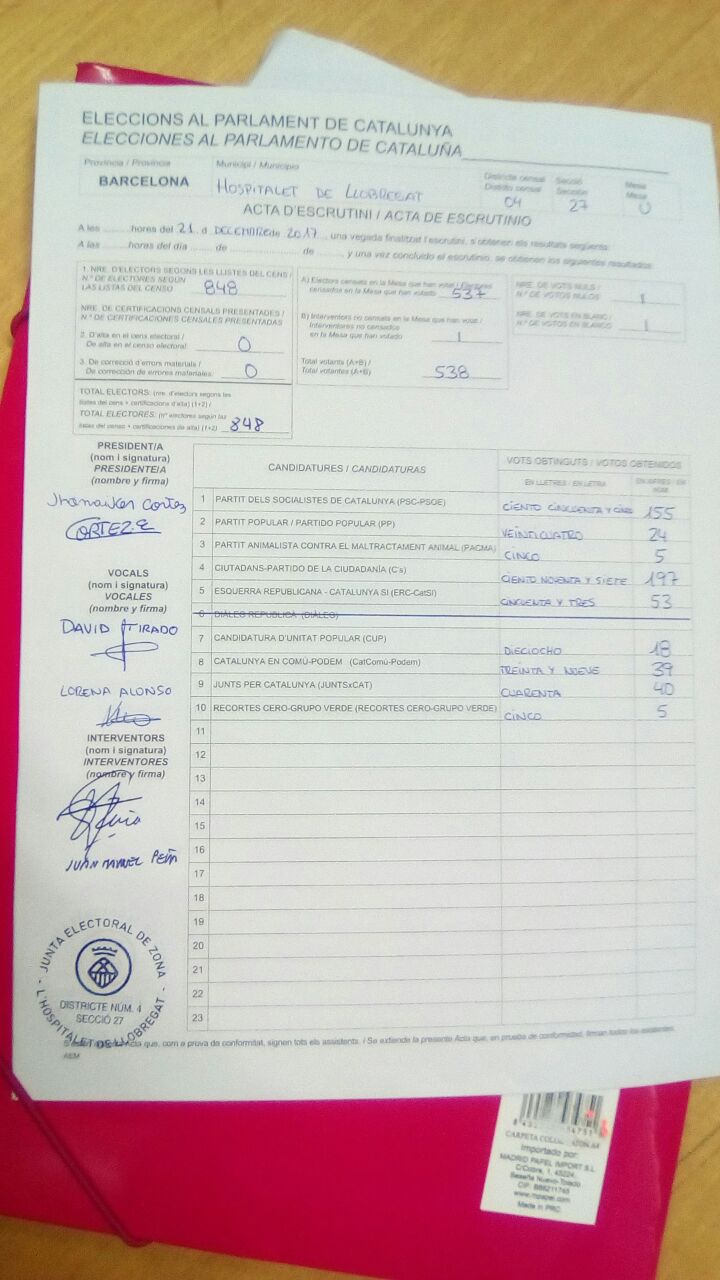 ELECCIONS AL PARLAMENT DE CATALUNYA
ELECCIONES AL PARLAMENTO DE CATALUÑA
Província / Provincia
Municipi / Municipio
Districte censal
Distrito censal
Secció
Sección
Mesa
Mesa
BARCELONA
HOSPITALET DE LLOBREGAT
04
27
U
ACTA D'ESCRUTINI / ACTA DE ESCRUTINIO
A les ........ hores del 21 d DECEMBRE de 2017, una vegada finalitzat l'escrutini, s'obtenen els resultats següents:
A las ........ horas del día ........ de ........ de ........ y una vez concluido el escrutinio, se obtienen los siguientes resultados:
1. NRE. D'ELECTORS SEGONS LES LLISTES DEL CENS /
N.º DE ELECTORES SEGÚN
LAS LISTAS DEL CENSO
848
NRE. DE CERTIFICACIONS CENSALS PRESENTADES /
N.º DE CERTIFICACIONES CENSALES PRESENTADAS
2. D'alta en el cens electoral /
De alta en el censo electoral:
0
3. De correcció d'errors materials /
De corrección de errores materiales:
0
TOTAL ELECTORS: (nre. d'electors segons les
llistes del cens + certificacions d'alta) (1+2) /
TOTAL ELECTORES: (nº electores según las
listas del censo + certificaciones de alta) (1+2)
848
A) Electors censats en la Mesa que han votat / Electores
censados en la Mesa que han votado
537
B) Interventors no censats en la Mesa que han votat /
Interventores no censados
en la Mesa que han votado
1
Total votants (A+B) /
Total votantes (A+B)
538
NRE. DE VOTS NULS /
N.º DE VOTOS NULOS
1
NRE. DE VOTS EN BLANC /
N.º DE VOTOS EN BLANCO
1
PRESIDENT/A
(nom i signatura)
PRESIDENTE/A
(nombre y firma)
Jhonaiker Cortez
CORTEZ
VOCALS
(nom i signatura)
VOCALES
(nombre y firma)
DAVID TIRADO
LORENA ALONSO
INTERVENTORS
(nom i signatura)
INTERVENTORES
(nombre y firma)
JUAN MANUEL PEÑA
CANDIDATURES / CANDIDATURAS
VOTS OBTINGUTS / VOTOS OBTENIDOS
EN LLETRES / EN LETRA
EN XIFRES / EN NÚM.
1 PARTIT DELS SOCIALISTES DE CATALUNYA (PSC-PSOE) CIENTO CINCUENTA Y CINCO 155
2 PARTIT POPULAR / PARTIDO POPULAR (PP) VEINTICUATRO 24
3 PARTIT ANIMALISTA CONTRA EL MALTRACTAMENT ANIMAL (PACMA) CINCO 5
4 CIUTADANS-PARTIDO DE LA CIUDADANÍA (C's) CIENTO NOVENTA Y SIETE 197
5 ESQUERRA REPUBLICANA - CATALUNYA SÍ (ERC-CatSí) CINCUENTA Y TRES 53
6 DIÀLEG REPÚBLICA (DIÀLEG)
7 CANDIDATURA D'UNITAT POPULAR (CUP) DIECIOCHO 18
8 CATALUNYA EN COMÚ-PODEM (CatComú-Podem) TREINTA Y NUEVE 39
9 JUNTS PER CATALUNYA (JUNTSxCAT) CUARENTA 40
10 RECORTES CERO-GRUPO VERDE (RECORTES CERO-GRUPO VERDE) CINCO 5
11
12
13
14
15
16
17
18
19
20
21
22
23
JUNTA ELECTORAL DE ZONA
DISTRICTE NÚM. 4
SECCIÓ 27
L'HOSPITALET DE LLOBREGAT
Acta que, com a prova de conformitat, signen tots els assistents. / Se extiende la presente Acta que, en prueba de conformidad, firman todos los asistentes.
CARPETA COLOR
Importado por:
MADRID PAPEL IMPORT S.L.
C/Cobre, 1, 45224,
Seseña Nuevo-Toledo
CIF: B86211745
www.mpapel.com
Made in PRC